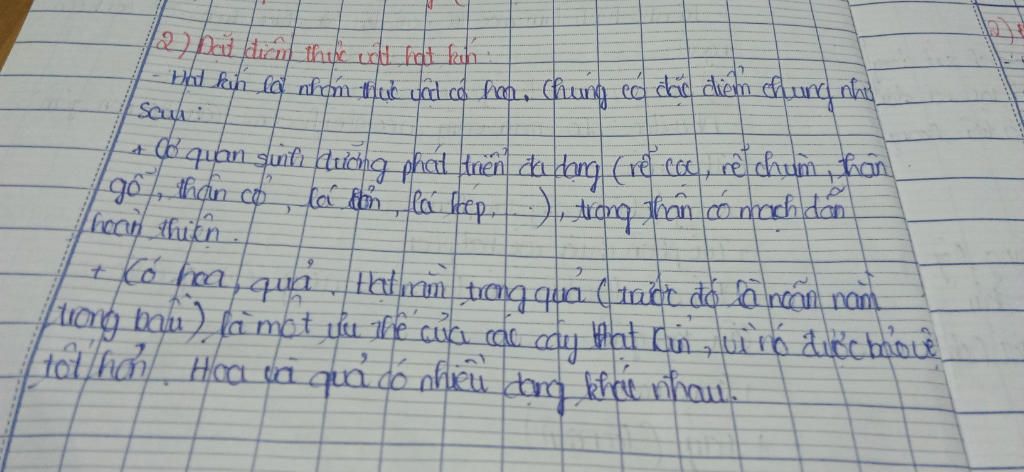 2) Đặc điểm thực vật hạt kín
- Hạt kín là nhóm thực vật có hoa. Chúng có đặc điểm chung như
sau:
+ Cơ quan sinh dưỡng phát triển đa dạng (rễ cọc, rễ chùm, thân
gỗ, thân cỏ, lá đơn, lá kép, ...), trong thân có mạch dẫn
hoàn thiện.
+ Có hoa, quả. Hạt nằm trong quả (trước đó là noãn nằm
trong bầu) là một ưu thế của các cây Hạt kín, vì nó được bảo vệ
tốt hơn. Hoa và quả có nhiều dạng khác nhau.